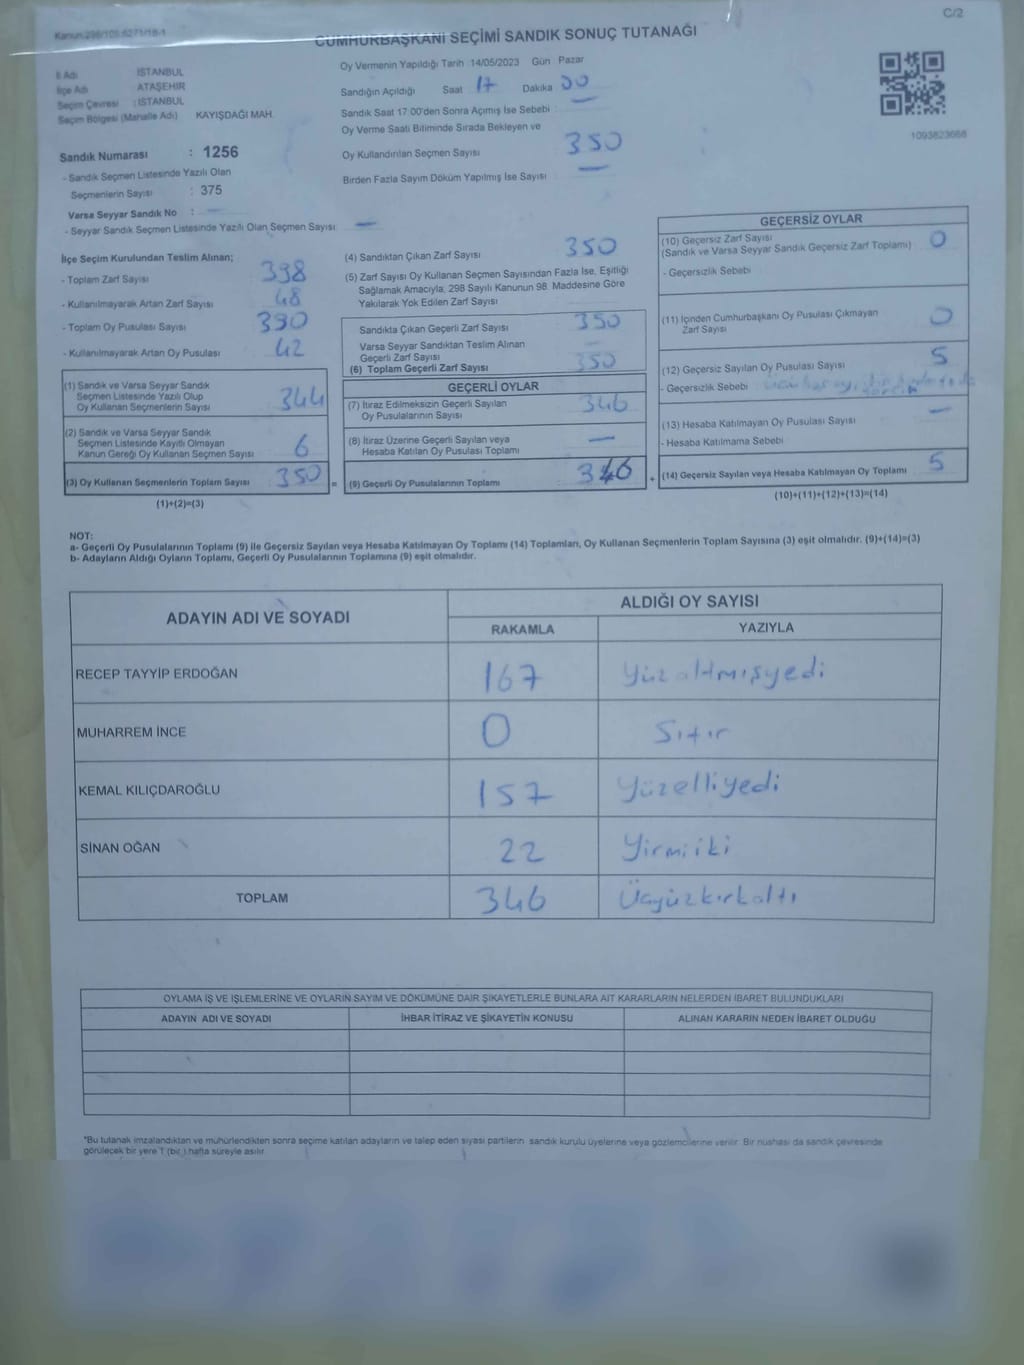 C/2
Kanun:298/105,6271/18-1
CUMHURBAŞKANI SEÇİMİ SANDIK SONUÇ TUTANAĞI
İl Adı : İSTANBUL
İlçe Adı ATAŞEHİR
Seçim Çevresi : İSTANBUL
Seçim Bölgesi (Mahalle Adı) KAYIŞDAĞI MAH.
Sandık Numarası : 1256
- Sandık Seçmen Listesinde Yazılı Olan
Seçmenlerin Sayısı : 375
Varsa Seyyar Sandık No : —
- Seyyar Sandık Seçmen Listesinde Yazılı Olan Seçmen Sayısı: —
Oy Vermenin Yapıldığı Tarih 14/05/2023 Gün Pazar
Sandığın Açıldığı Saat 17 Dakika 00
Sandık Saat 17:00'den Sonra Açılmış İse Sebebi : —
Oy Verme Saati Bitiminde Sırada Bekleyen ve
Oy Kullandırılan Seçmen Sayısı 350
Birden Fazla Sayım Döküm Yapılmış İse Sayısı —
1093823668
İlçe Seçim Kurulundan Teslim Alınan;
- Toplam Zarf Sayısı 398
- Kullanılmayarak Artan Zarf Sayısı 48
- Toplam Oy Pusulası Sayısı 390
- Kullanılmayarak Artan Oy Pusulası 42
(1) Sandık ve Varsa Seyyar Sandık
Seçmen Listesinde Yazılı Olup
Oy Kullanan Seçmenlerin Sayısı 344
(2) Sandık ve Varsa Seyyar Sandık
Seçmen Listesinde Kayıtlı Olmayan
Kanun Gereği Oy Kullanan Seçmen Sayısı 6
(3) Oy Kullanan Seçmenlerin Toplam Sayısı 350 =
(1)+(2)=(3)
(4) Sandıktan Çıkan Zarf Sayısı 350
(5) Zarf Sayısı Oy Kullanan Seçmen Sayısından Fazla İse, Eşitliği
Sağlamak Amacıyla, 298 Sayılı Kanunun 98. Maddesine Göre
Yakılarak Yok Edilen Zarf Sayısı —
Sandıkta Çıkan Geçerli Zarf Sayısı 350
Varsa Seyyar Sandıktan Teslim Alınan
Geçerli Zarf Sayısı —
(6) Toplam Geçerli Zarf Sayısı 350
GEÇERLİ OYLAR
(7) İtiraz Edilmeksizin Geçerli Sayılan
Oy Pusulalarının Sayısı 346
(8) İtiraz Üzerine Geçerli Sayılan veya
Hesaba Katılan Oy Pusulası Toplamı —
(9) Geçerli Oy Pusulalarının Toplamı 346 +
GEÇERSİZ OYLAR
(10) Geçersiz Zarf Sayısı
(Sandık ve Varsa Seyyar Sandık Geçersiz Zarf Toplamı) 0
- Geçersizlik Sebebi
(11) İçinden Cumhurbaşkanı Oy Pusulası Çıkmayan
Zarf Sayısı 0
(12) Geçersiz Sayılan Oy Pusulası Sayısı 5
- Geçersizlik Sebebi
(13) Hesaba Katılmayan Oy Pusulası Sayısı —
- Hesaba Katılmama Sebebi
(14) Geçersiz Sayılan veya Hesaba Katılmayan Oy Toplamı 5
(10)+(11)+(12)+(13)=(14)
NOT:
a- Geçerli Oy Pusulalarının Toplamı (9) ile Geçersiz Sayılan veya Hesaba Katılmayan Oy Toplamı (14) Toplamları, Oy Kullanan Seçmenlerin Toplam Sayısına (3) eşit olmalıdır. (9)+(14)=(3)
b- Adayların Aldığı Oyların Toplamı, Geçerli Oy Pusulalarının Toplamına (9) eşit olmalıdır.
ADAYIN ADI VE SOYADI ALDIĞI OY SAYISI
RAKAMLA YAZIYLA
RECEP TAYYİP ERDOĞAN 167 Yüzaltmışyedi
MUHARREM İNCE 0 Sıfır
KEMAL KILIÇDAROĞLU 157 Yüzelliyedi
SİNAN OĞAN 22 Yirmiiki
TOPLAM 346 Üçyüzkırkaltı
OYLAMA İŞ VE İŞLEMLERİNE VE OYLARIN SAYIM VE DÖKÜMÜNE DAİR ŞİKAYETLERLE BUNLARA AİT KARARLARIN NELERDEN İBARET BULUNDUKLARI
ADAYIN ADI VE SOYADI İHBAR İTİRAZ VE ŞİKAYETİN KONUSU ALINAN KARARIN NEDEN İBARET OLDUĞU
*Bu tutanak imzalandıktan ve mühürlendikten sonra seçime katılan adayların ve talep eden siyasi partilerin sandık kurulu üyelerine veya gözlemcilerine verilir. Bir nüshası da sandık çevresinde
görülecek bir yere 1 (bir) hafta süreyle asılır.